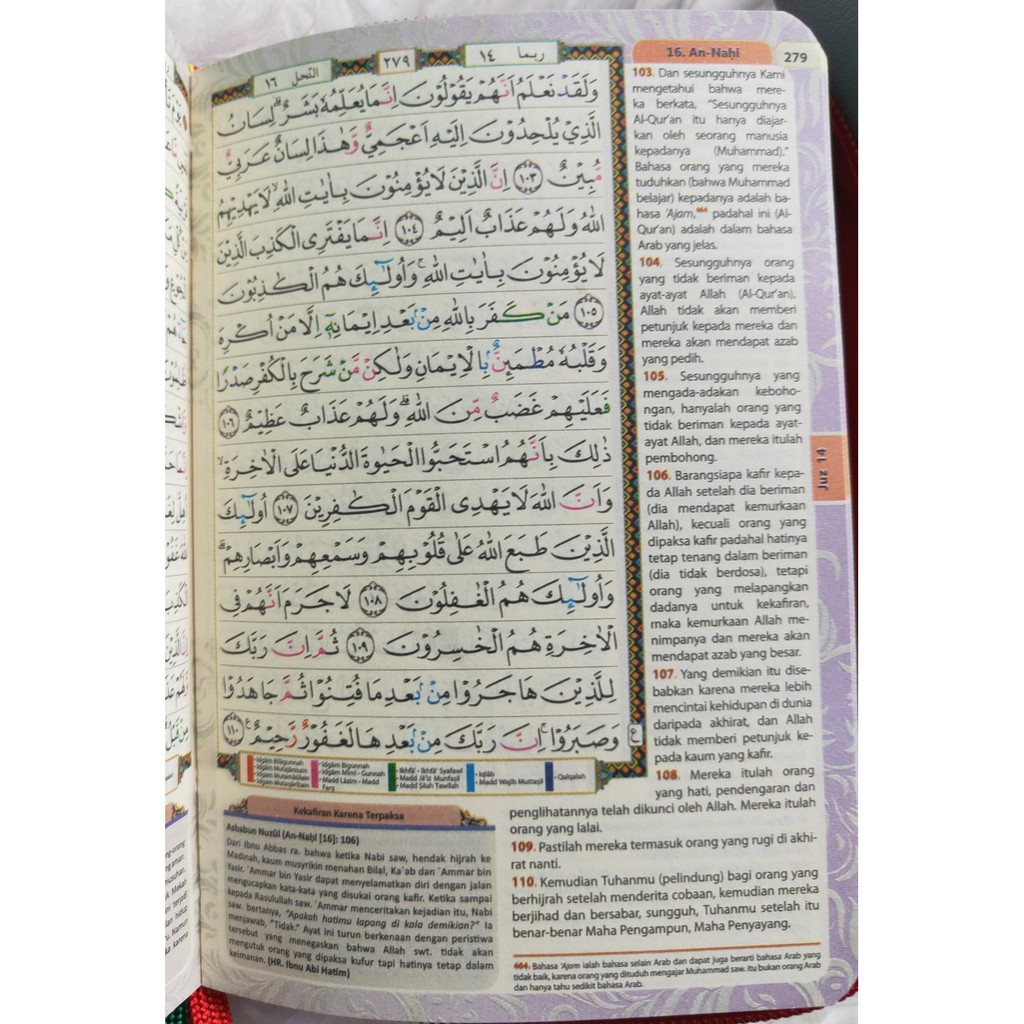 النحل ١٦
٢٧٩
ربما ١٤
16. An-Naḥl
279
وَلَقَدْ نَعْلَمُ اَنَّهُمْ يَقُوْلُوْنَ اِنَّمَا يُعَلِّمُهٗ بَشَرٌۗ لِسَانُ
الَّذِيْ يُلْحِدُوْنَ اِلَيْهِ اَعْجَمِيٌّ وَّهٰذَا لِسَانٌ عَرَبِيٌّ
مُّبِيْنٌ ١٠٣ اِنَّ الَّذِيْنَ لَا يُؤْمِنُوْنَ بِاٰيٰتِ اللّٰهِۙ لَا يَهْدِيْهِمُ
اللّٰهُ وَلَهُمْ عَذَابٌ اَلِيْمٌ ١٠٤ اِنَّمَا يَفْتَرِى الْكَذِبَ الَّذِيْنَ
لَا يُؤْمِنُوْنَ بِاٰيٰتِ اللّٰهِۚ وَاُولٰۤىِٕكَ هُمُ الْكٰذِبُوْنَ
١٠٥ مَنْ كَفَرَ بِاللّٰهِ مِنْۢ بَعْدِ اِيْمَانِهٖٓ اِلَّا مَنْ اُكْرِهَ
وَقَلْبُهٗ مُطْمَىِٕنٌّۢ بِالْاِيْمَانِ وَلٰكِنْ مَّنْ شَرَحَ بِالْكُفْرِ صَدْرًا
فَعَلَيْهِمْ غَضَبٌ مِّنَ اللّٰهِۗ وَلَهُمْ عَذَابٌ عَظِيْمٌ ١٠٦
ذٰلِكَ بِاَنَّهُمُ اسْتَحَبُّوا الْحَيٰوةَ الدُّنْيَا عَلَى الْاٰخِرَةِۙ
وَاَنَّ اللّٰهَ لَا يَهْدِى الْقَوْمَ الْكٰفِرِيْنَ ١٠٧ اُولٰۤىِٕكَ
الَّذِيْنَ طَبَعَ اللّٰهُ عَلٰى قُلُوْبِهِمْ وَسَمْعِهِمْ وَاَبْصَارِهِمْۗ
وَاُولٰۤىِٕكَ هُمُ الْغٰفِلُوْنَ ١٠٨ لَا جَرَمَ اَنَّهُمْ فِى
الْاٰخِرَةِ هُمُ الْخٰسِرُوْنَ ١٠٩ ثُمَّ اِنَّ رَبَّكَ
لِلَّذِيْنَ هَاجَرُوْا مِنْۢ بَعْدِ مَا فُتِنُوْا ثُمَّ جَاهَدُوْا
وَصَبَرُوْاۚ اِنَّ رَبَّكَ مِنْۢ بَعْدِهَا لَغَفُوْرٌ رَّحِيْمٌ ١١٠ ع
103. Dan sesungguhnya Kami
mengetahui bahwa mere-
ka berkata, "Sesungguhnya
Al-Qur'an itu hanya diajar-
kan oleh seorang manusia
kepadanya (Muhammad)."
Bahasa orang yang mereka
tuduhkan (bahwa Muhammad
belajar) kepadanya adalah ba-
hasa 'Ajam,464 padahal ini (Al-
Qur'an) adalah dalam bahasa
Arab yang jelas.
104. Sesungguhnya orang
yang tidak beriman kepada
ayat-ayat Allah (Al-Qur'an),
Allah tidak akan memberi
petunjuk kepada mereka dan
mereka akan mendapat azab
yang pedih.
105. Sesungguhnya yang
mengada-adakan keboho-
ngan, hanyalah orang yang
tidak beriman kepada ayat-
ayat Allah, dan mereka itulah
pembohong.
106. Barangsiapa kafir kepa-
da Allah setelah dia beriman
(dia mendapat kemurkaan
Allah), kecuali orang yang
dipaksa kafir padahal hatinya
tetap tenang dalam beriman
(dia tidak berdosa), tetapi
orang yang melapangkan
dadanya untuk kekafiran,
maka kemurkaan Allah me-
nimpanya dan mereka akan
mendapat azab yang besar.
107. Yang demikian itu dise-
babkan karena mereka lebih
mencintai kehidupan di dunia
daripada akhirat, dan Allah
tidak memberi petunjuk ke-
pada kaum yang kafir.
108. Mereka itulah orang
yang hati, pendengaran dan
penglihatannya telah dikunci oleh Allah. Mereka itulah
orang yang lalai.
109. Pastilah mereka termasuk orang yang rugi di akhi-
rat nanti.
110. Kemudian Tuhanmu (pelindung) bagi orang yang
berhijrah setelah menderita cobaan, kemudian mereka
berjihad dan bersabar, sungguh, Tuhanmu setelah itu
benar-benar Maha Pengampun, Maha Penyayang.
464. Bahasa 'Ajam ialah bahasa selain Arab dan dapat juga berarti bahasa Arab yang
tidak baik, karena orang yang dituduh mengajar Muhammad saw. itu bukan orang Arab
dan hanya tahu sedikit bahasa Arab.
Juz 14
• Idgām Bilāgunnah
• Idgām Mutajānisain
• Idgām Mutamāṡilain
• Idgām Mutaqāribain
• Idgām Bigunnah
• Idgām Mīmī • Gunnah
• Madd Lāzim • Madd
Farq
• Ikhfā' • Ikhfā' Syafawī
• Madd Jā'iz Munfaṣil
• Madd Ṣilah Ṭawīlah
• Iqlāb
• Madd Wajib Muttaṣil
• Qalqalah
Kekafiran Karena Terpaksa
Asbabun Nuzūl (An-Naḥl [16]: 106)
Dari Ibnu Abbas ra. bahwa ketika Nabi saw, hendak hijrah ke
Madinah, kaum musyrikin menahan Bilal, Ka`ab dan `Ammar bin
Yasir. `Ammar bin Yasir dapat menyelamatkan diri dengan jalan
mengucapkan kata-kata yang disukai orang kafir. Ketika sampai
kepada Rasulullah saw. `Ammar menceritakan kejadian itu, Nabi
saw. bertanya, "Apakah hatimu lapang di kala demikian?" Ia
menjawab, "Tidak." Ayat ini turun berkenaan dengan peristiwa
tersebut yang menegaskan bahwa Allah swt. tidak akan
mengutuk orang yang dipaksa kufur tapi hatinya tetap dalam
keimanan. (HR. Ibnu Abi Hatim)